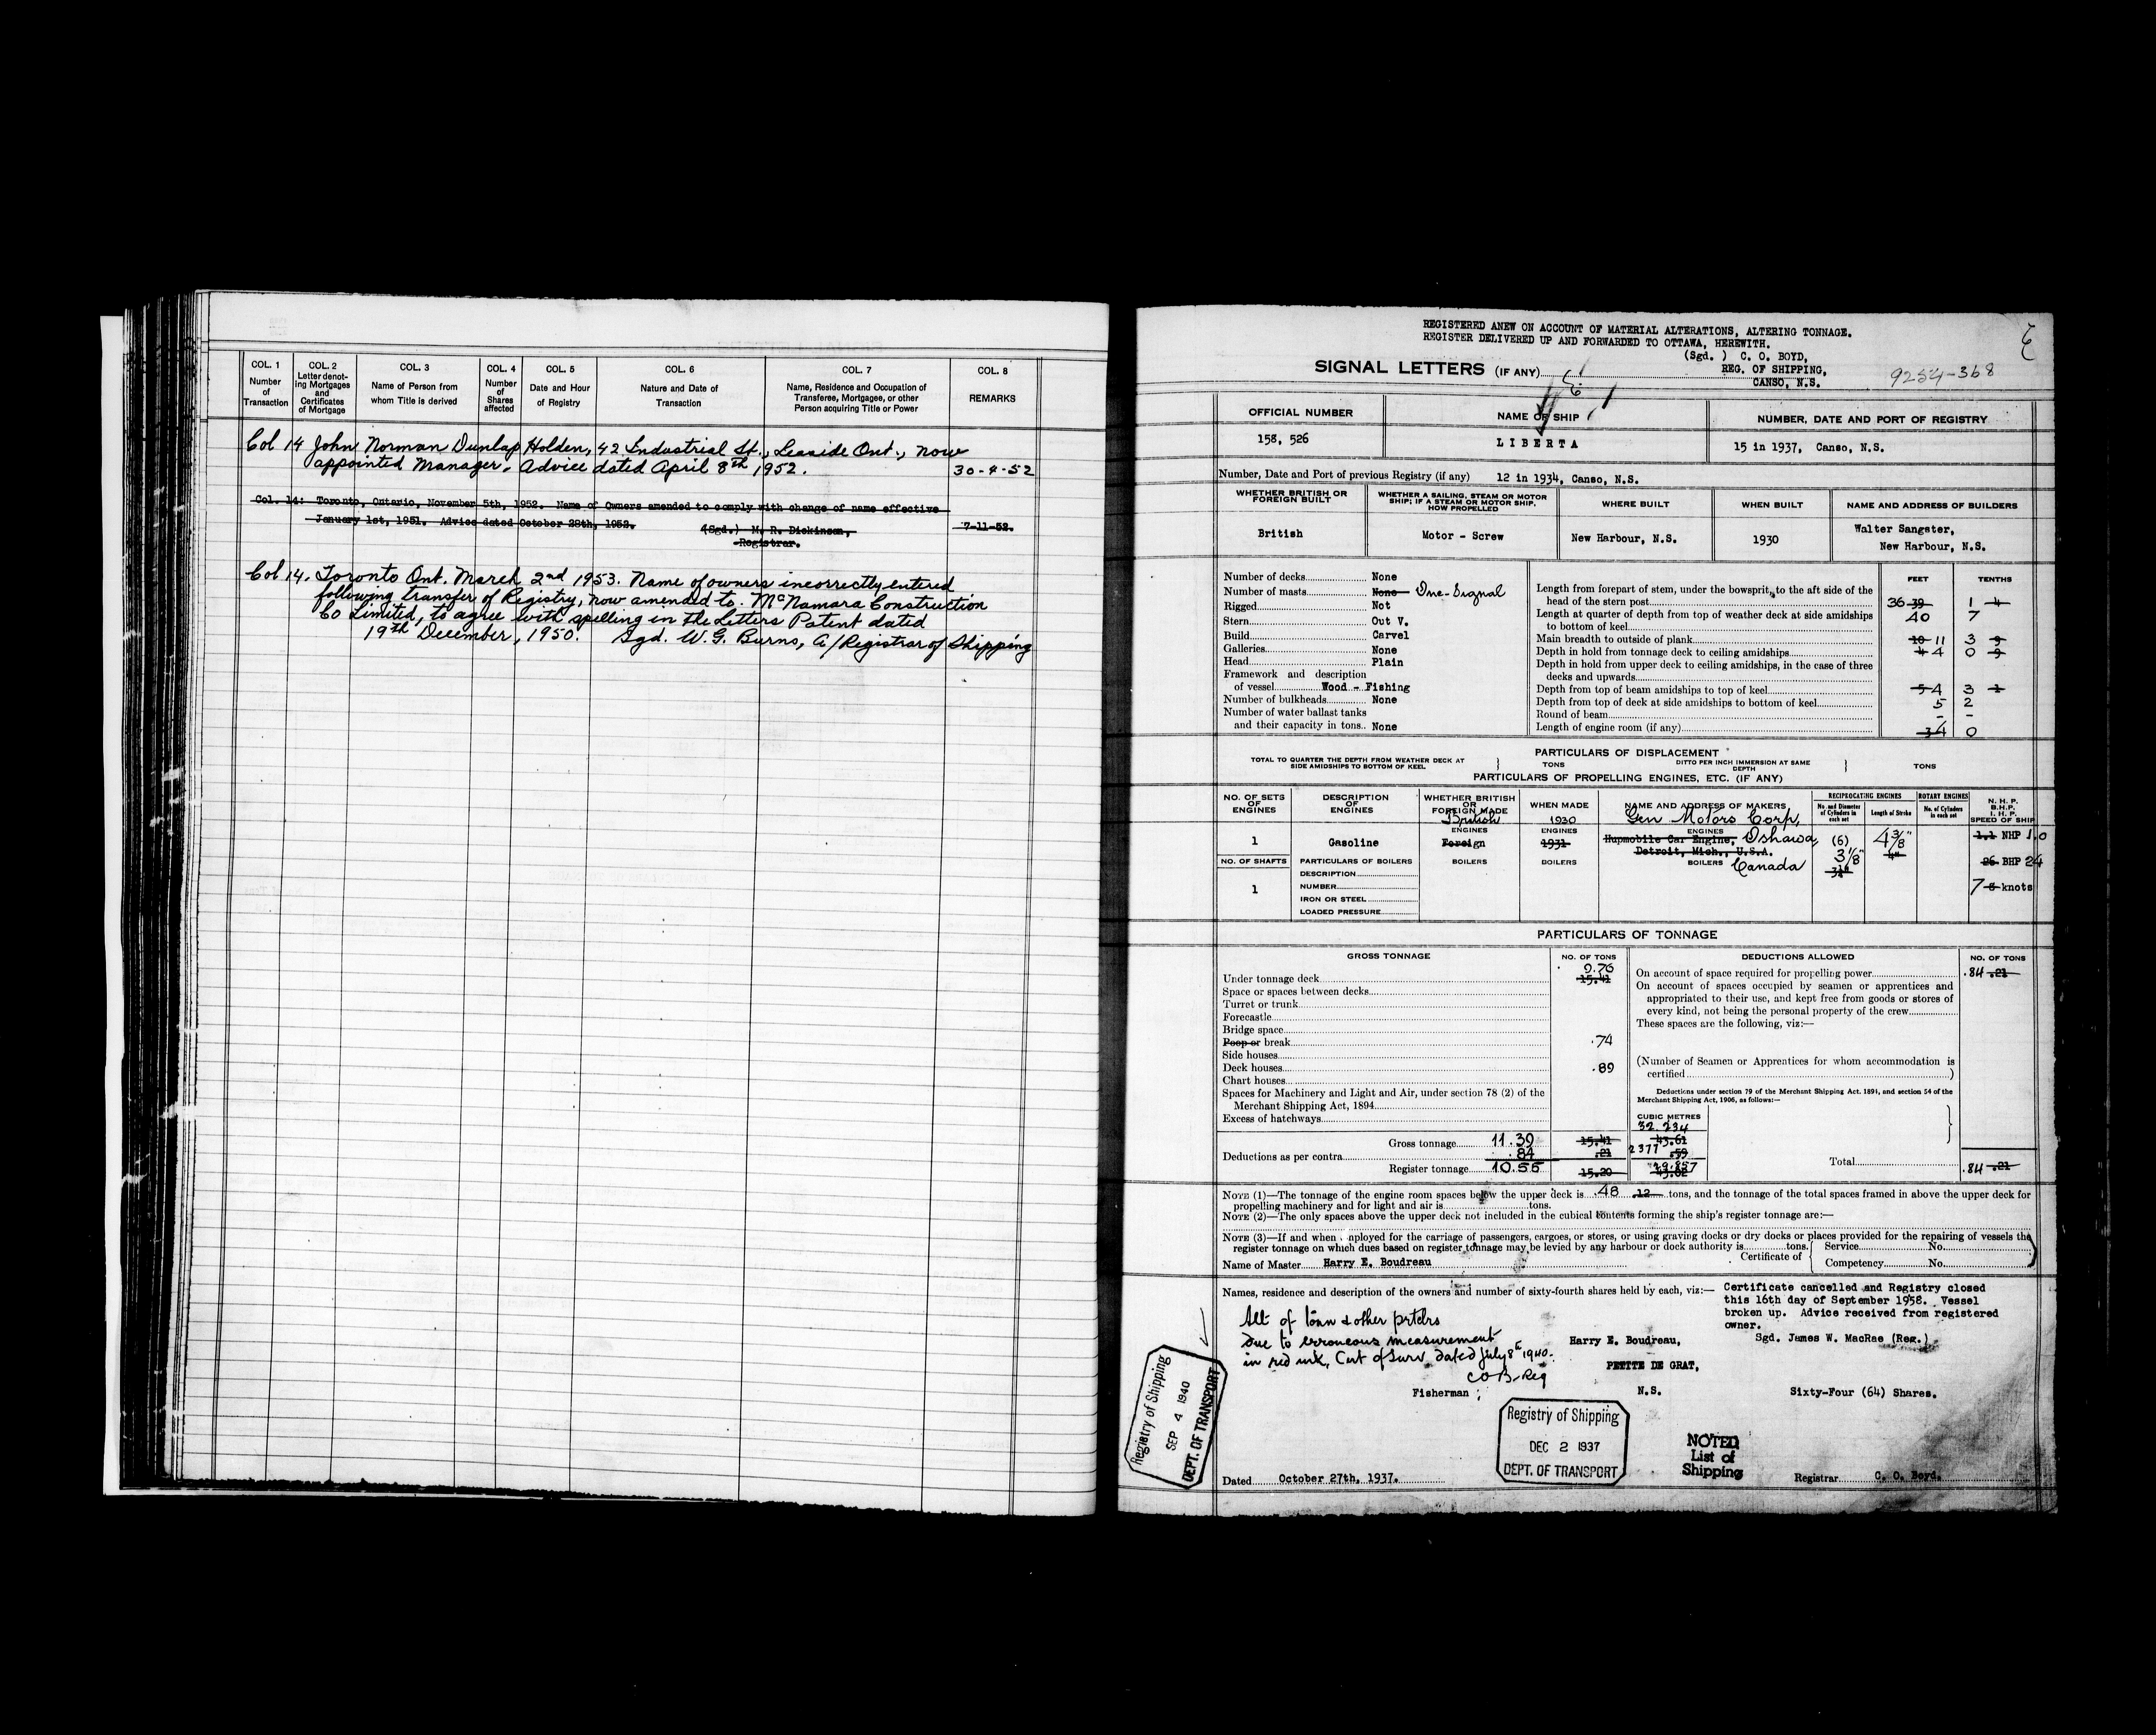 COL. 1 COL. 2 COL. 3 COL. 4 COL. 5 COL. 6 COL. 7 COL. 8
Number of Transaction
Letter denoting Mortgages and Certificates of Mortgage
Name of Person from whom Title is derived
Number of Shares affected
Date and Hour of Registry
Nature and Date of Transaction
Name, Residence and Occupation of Transferee, Mortgagee, or other Person acquiring Title or Power
REMARKS
Col 14 John Norman Dunlap Holden, 42 Industrial St., Leaside Ont., now
appointed Manager. Advice dated April 8th 1952. 30-4-52
Col. 14: Toronto, Ontario, November 5th, 1952. Name of Owners amended to comply with change of name effective
January 1st, 1951. Advice dated October 28th, 1952. (Sgd.) M. R. Dickinson, 7-11-52.
Registrar.
Col 14. Toronto Ont. March 2nd 1953. Name of owners incorrectly entered
following transfer of Registry, now amended to: McNamara Construction
Co Limited, to agree with spelling in the Letters Patent dated
19th December, 1950. Sgd. W. G. Burns, A/Registrar of Shipping
REGISTERED ANEW ON ACCOUNT OF MATERIAL ALTERATIONS, ALTERING TONNAGE.
REGISTER DELIVERED UP AND FORWARDED TO OTTAWA, HEREWITH.
(Sgd. ) C. O. BOYD,
SIGNAL LETTERS (IF ANY) REG. OF SHIPPING,
CANSO, N.S. 9254-368
OFFICIAL NUMBER NAME OF SHIP NUMBER, DATE AND PORT OF REGISTRY
158, 526 LIBERTA 15 in 1937, Canso, N.S.
Number, Date and Port of previous Registry (if any) 12 in 1934, Canso, N.S.
WHETHER BRITISH OR FOREIGN BUILT
WHETHER A SAILING, STEAM OR MOTOR SHIP; IF A STEAM OR MOTOR SHIP, HOW PROPELLED
WHERE BUILT WHEN BUILT NAME AND ADDRESS OF BUILDERS
British Motor - Screw New Harbour, N.S. 1930 Walter Sangster,
New Harbour, N.S.
Number of decks None
Number of masts None One-Signal
Rigged Not
Stern Out V.
Build Carvel
Galleries None
Head Plain
Framework and description
of vessel Wood - Fishing
Number of bulkheads None
Number of water ballast tanks
and their capacity in tons None
FEET TENTHS
Length from forepart of stem, under the bowsprit, to the aft side of the
head of the stern post 36 39 1 4
Length at quarter of depth from top of weather deck at side amidships
to bottom of keel 40 7
Main breadth to outside of plank 10 11 3 9
Depth in hold from tonnage deck to ceiling amidships 4 4 0 9
Depth in hold from upper deck to ceiling amidships, in the case of three
decks and upwards
Depth from top of beam amidships to top of keel 5 4 3 1
Depth from top of deck at side amidships to bottom of keel 5 2
Round of beam - -
Length of engine room (if any) 3 4 0
PARTICULARS OF DISPLACEMENT
TOTAL TO QUARTER THE DEPTH FROM WEATHER DECK AT SIDE AMIDSHIPS TO BOTTOM OF KEEL TONS DITTO PER INCH IMMERSION AT SAME DEPTH TONS
PARTICULARS OF PROPELLING ENGINES, ETC. (IF ANY)
NO. OF SETS OF ENGINES
DESCRIPTION OF ENGINES
WHETHER BRITISH OR FOREIGN MADE
WHEN MADE
NAME AND ADDRESS OF MAKERS
RECIPROCATING ENGINES
No. and Diameter of Cylinders in each set
Length of Stroke
ROTARY ENGINES
No. of Cylinders in each set
N. H. P.
B. H. P.
I. H. P.
SPEED OF SHIP
British 1930 Gen Motors Corp,
ENGINES ENGINES ENGINES
1 Gasoline Foreign 1931 Hupmobile Car Engine, Oshawa, (6) 4 3/8" 1.1 NHP 1.0
Detroit, Mich., U.S.A. 3 1/8" 4"
NO. OF SHAFTS PARTICULARS OF BOILERS BOILERS BOILERS BOILERS Canada 26 BHP 24
DESCRIPTION
1 NUMBER 7 8 knots
IRON OR STEEL
LOADED PRESSURE
PARTICULARS OF TONNAGE
GROSS TONNAGE NO. OF TONS DEDUCTIONS ALLOWED NO. OF TONS
9.76
Under tonnage deck 15.41
Space or spaces between decks
Turret or trunk
Forecastle
Bridge space
Poop or break .74
Side houses
Deck houses .89
Chart houses
Spaces for Machinery and Light and Air, under section 78 (2) of the
Merchant Shipping Act, 1894
Excess of hatchways
Gross tonnage 11.39 15.41
Deductions as per contra .84 .21
Register tonnage 10.55 15.20
On account of space required for propelling power .84 .21
On account of spaces occupied by seamen or apprentices and
appropriated to their use, and kept free from goods or stores of
every kind, not being the personal property of the crew
These spaces are the following, viz:—
(Number of Seamen or Apprentices for whom accommodation is
certified )
Deductions under section 79 of the Merchant Shipping Act. 1894, and section 54 of the
Merchant Shipping Act, 1906, as follows:—
CUBIC METRES
32.234
43.61
2377 .59
29.857
Total .84 .21
NOTE (1)—The tonnage of the engine room spaces below the upper deck is .48 .12 tons, and the tonnage of the total spaces framed in above the upper deck for
propelling machinery and for light and air is tons.
NOTE (2)—The only spaces above the upper deck not included in the cubical contents forming the ship's register tonnage are:—
NOTE (3)—If and when nployed for the carriage of passengers, cargoes, or stores, or using graving docks or dry docks or places provided for the repairing of vessels the
register tonnage on which dues based on register tonnage may be levied by any harbour or dock authority is tons.
Certificate of Service No.
Competency No.
Name of Master Harry E. Boudreau
Names, residence and description of the owners and number of sixty-fourth shares held by each, viz:—
Certificate cancelled and Registry closed
this 16th day of September 1958. Vessel
broken up. Advice received from registered
owner.
Sgd. James W. MacRae (Reg.)
Alt of tonn & other prtclrs
due to erroneous measurement
in red ink, Cert of Surv. dated July 8th 1940.
COB-Reg
Harry E. Boudreau,
PETITE DE GRAT,
Fisherman ; N.S. Sixty-Four (64) Shares.
Registry of Shipping
SEP 4 1940
DEPT. OF TRANSPORT
Registry of Shipping
DEC 2 1937
DEPT. OF TRANSPORT
NOTED
List of
Shipping
Dated October 27th, 1937. Registrar C. O. Boyd.